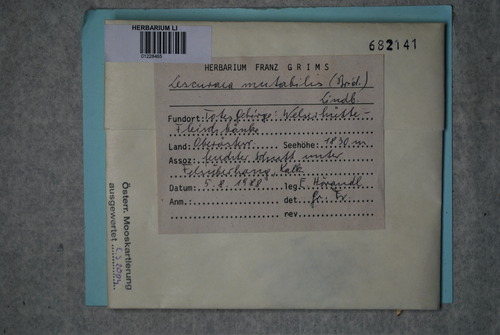 HERBARIUM LI
01228465
682141
HERBARIUM FRANZ GRIMS
Lescuraea mutabilis (Brid.)
Lindb.
Fundort: Totes Gebirge: Welserhütte –
Fleischbänke
Land: Oberösterr. Seehöhe: 1830 m
Assoz: feuchter Schutt unter
Felsüberhang, Kalk
Datum: 5.8.1988 leg F. Hörandl
Anm.: det
rev
Österr. Mooskartierung
ausgewertet